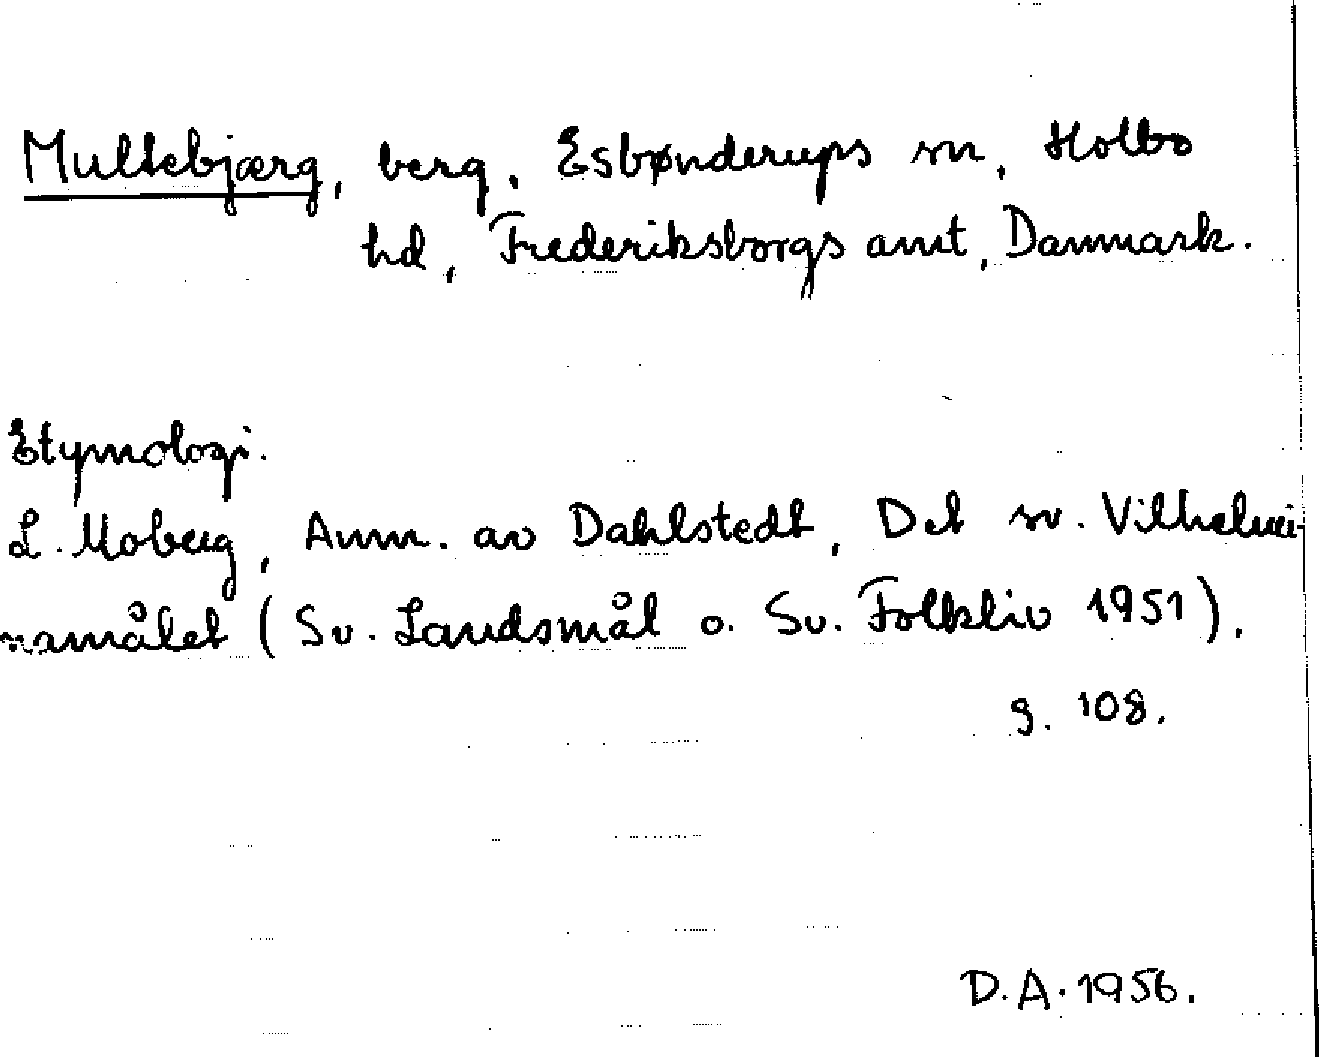 Multebjærg, berg, Esbønderups sn, Holbo
hd, Frederiksborgs amt, Danmark.
Etymologi.
L. Moberg, Anm. av Dahlstedt, Det sv. Vilhelmi-
namålet (Sv. Landsmål o. Sv. Folkliv 1951).
s. 108.
D.A. 1956.